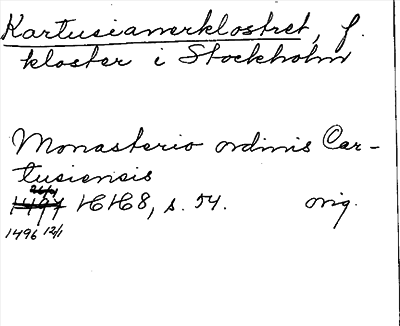 Kartusianerklostret, f.
kloster i Stockholm
Monasterio ordinis Car-
tusiensis
1494 HH8, s. 54. orig.
1496 12/1